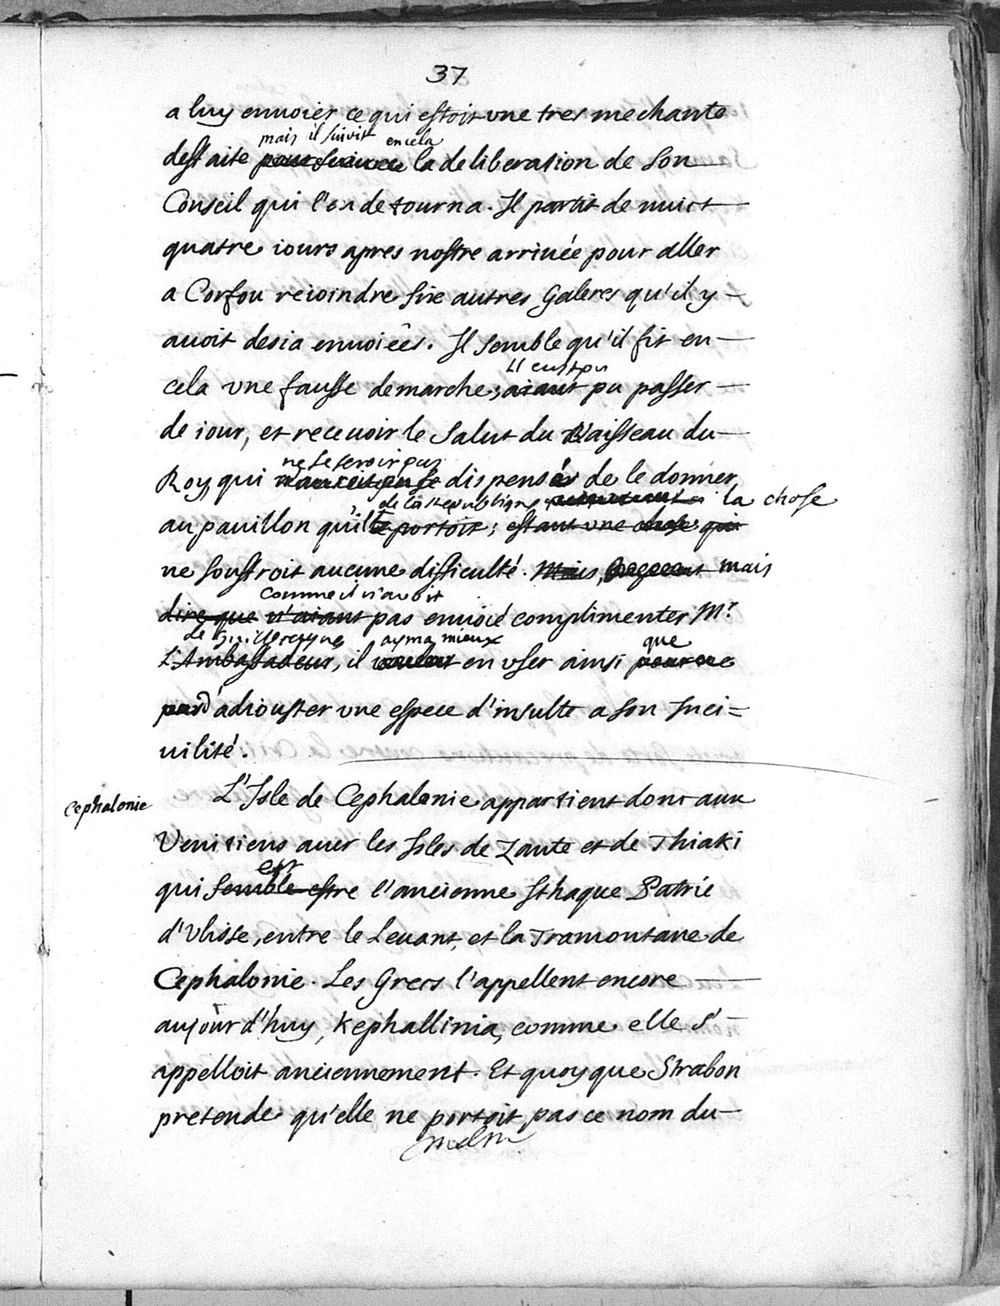 37
a luy enuoier ce qui estoit vne tres mechante
mais il suivit en cela
deffaite la deliberation de son
Conseil qui l'en detourna. Il partit de nuict
quatre iours apres nostre arriuée pour aller
a Corfou reioindre six autres Galeres qu'il y
auoit desia enuoiées. Il semble qu'il fit en
Il eust pu
cela vne fausse demarche; aiant pu passer
de iour, et receuoir le Salut du Vaisseau du
ne se seroit pas
Roy qui dispensé de le donner
de la Republique la chose
au pauillon qu'il portoit; estant vne chose qui
ne souffroit aucune difficulté. Mais mais
comme il n'auoit
dire que n'aiant pas enuoié complimenter Mr
ayma mieux que
L'Ambassadeur, il vouloit en vser ainsi pour ne
pas d'adiouster vne espece d'insulte a son Inci=
uilité.
Cephalonie
L'Isle de Cephalonie appartient donc aux
Venitiens auec les Isles de Zante et de Thiaki
est
qui semble estre l'ancienne Ithaque Patrie
d'Vlisse, entre le Leuant et la Tramontane de
Cephalonie. Les Grecs l'appellent encore
aujourd'huy, Kephallinia, comme elle s'
appelloit anciennement. Et quoy que Strabon
pretende qu'elle ne portoit pas ce nom du